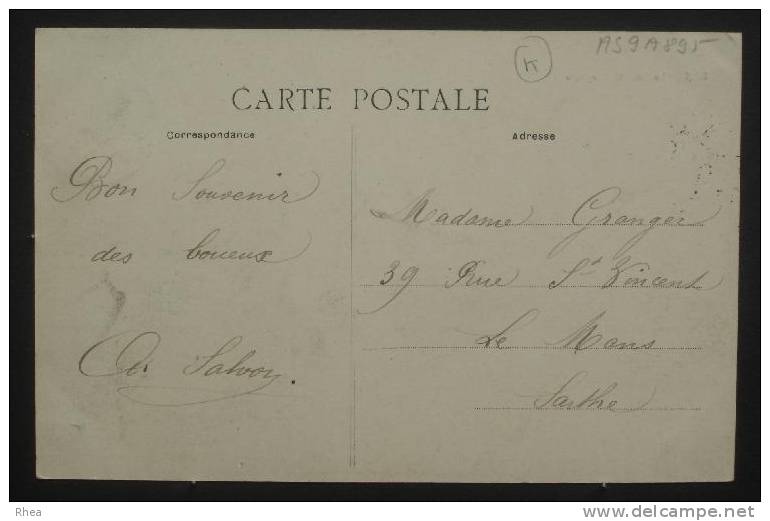 AS9A895
K
CARTE POSTALE
Correspondance
Adresse
Bon Souvenir
des boueux
Madame Granger
39 Rue St Vincent
Le Mans
Sarthe
Rhea
www.delcampe.net